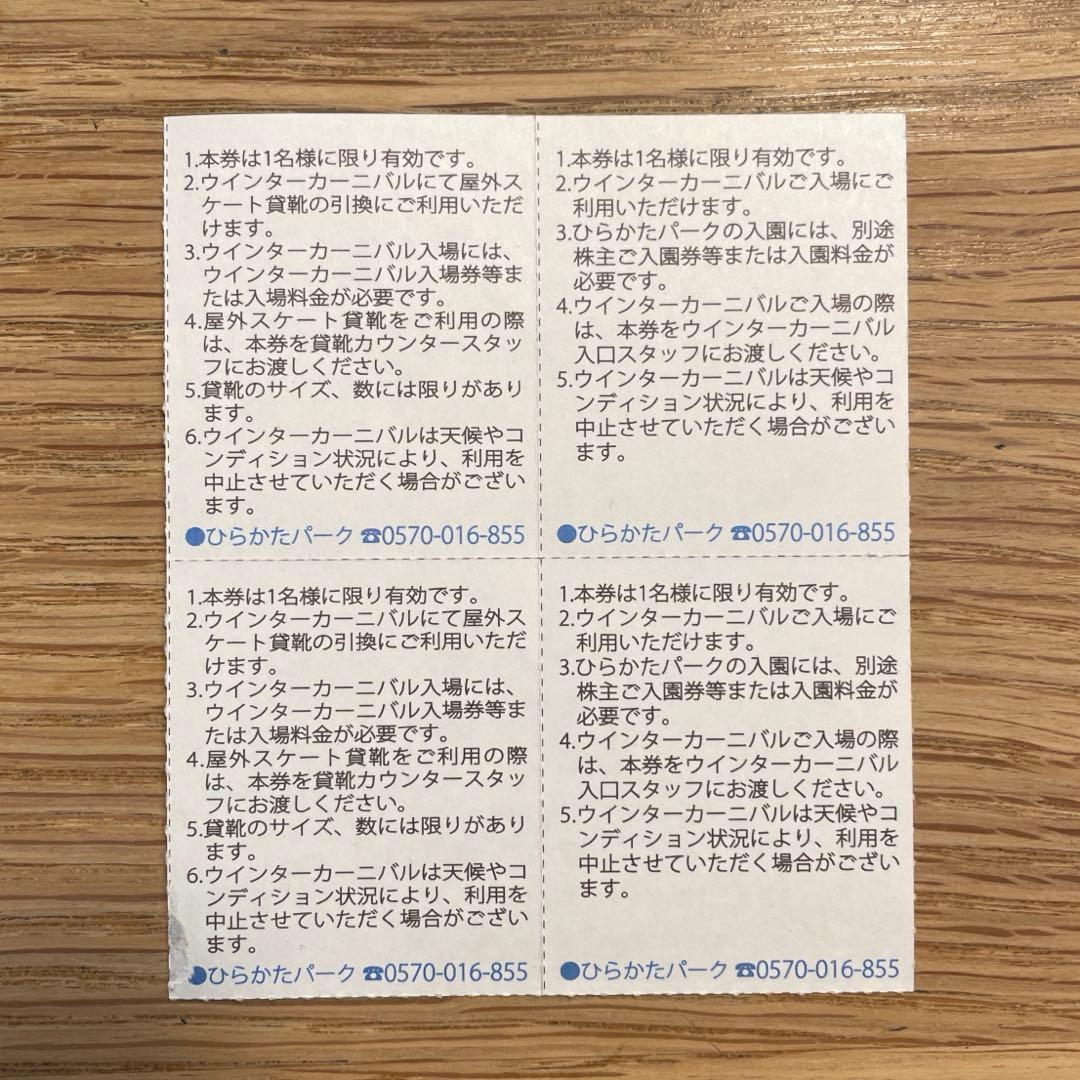 1.本券は1名様に限り有効です。
2.ウインターカーニバルにて屋外ス
ケート貸靴の引換にご利用いただ
けます。
3.ウインターカーニバル入場には、
ウインターカーニバル入場券等ま
たは入場料金が必要です。
4.屋外スケート貸靴をご利用の際
は、本券を貸靴カウンタースタッ
フにお渡しください。
5.貸靴のサイズ、数には限りがあり
ます。
6.ウインターカーニバルは天候やコ
ンディション状況により、利用を
中止させていただく場合がござい
ます。
●ひらかたパーク ☎0570-016-855
1.本券は1名様に限り有効です。
2.ウインターカーニバルご入場にご
利用いただけます。
3.ひらかたパークの入園には、別途
株主ご入園券等または入園料金が
必要です。
4.ウインターカーニバルご入場の際
は、本券をウインターカーニバル
入口スタッフにお渡しください。
5.ウインターカーニバルは天候やコ
ンディション状況により、利用を
中止させていただく場合がござい
ます。
●ひらかたパーク ☎0570-016-855
1.本券は1名様に限り有効です。
2.ウインターカーニバルにて屋外ス
ケート貸靴の引換にご利用いただ
けます。
3.ウインターカーニバル入場には、
ウインターカーニバル入場券等ま
たは入場料金が必要です。
4.屋外スケート貸靴をご利用の際
は、本券を貸靴カウンタースタッ
フにお渡しください。
5.貸靴のサイズ、数には限りがあり
ます。
6.ウインターカーニバルは天候やコ
ンディション状況により、利用を
中止させていただく場合がござい
ます。
●ひらかたパーク ☎0570-016-855
1.本券は1名様に限り有効です。
2.ウインターカーニバルご入場にご
利用いただけます。
3.ひらかたパークの入園には、別途
株主ご入園券等または入園料金が
必要です。
4.ウインターカーニバルご入場の際
は、本券をウインターカーニバル
入口スタッフにお渡しください。
5.ウインターカーニバルは天候やコ
ンディション状況により、利用を
中止させていただく場合がござい
ます。
●ひらかたパーク ☎0570-016-855